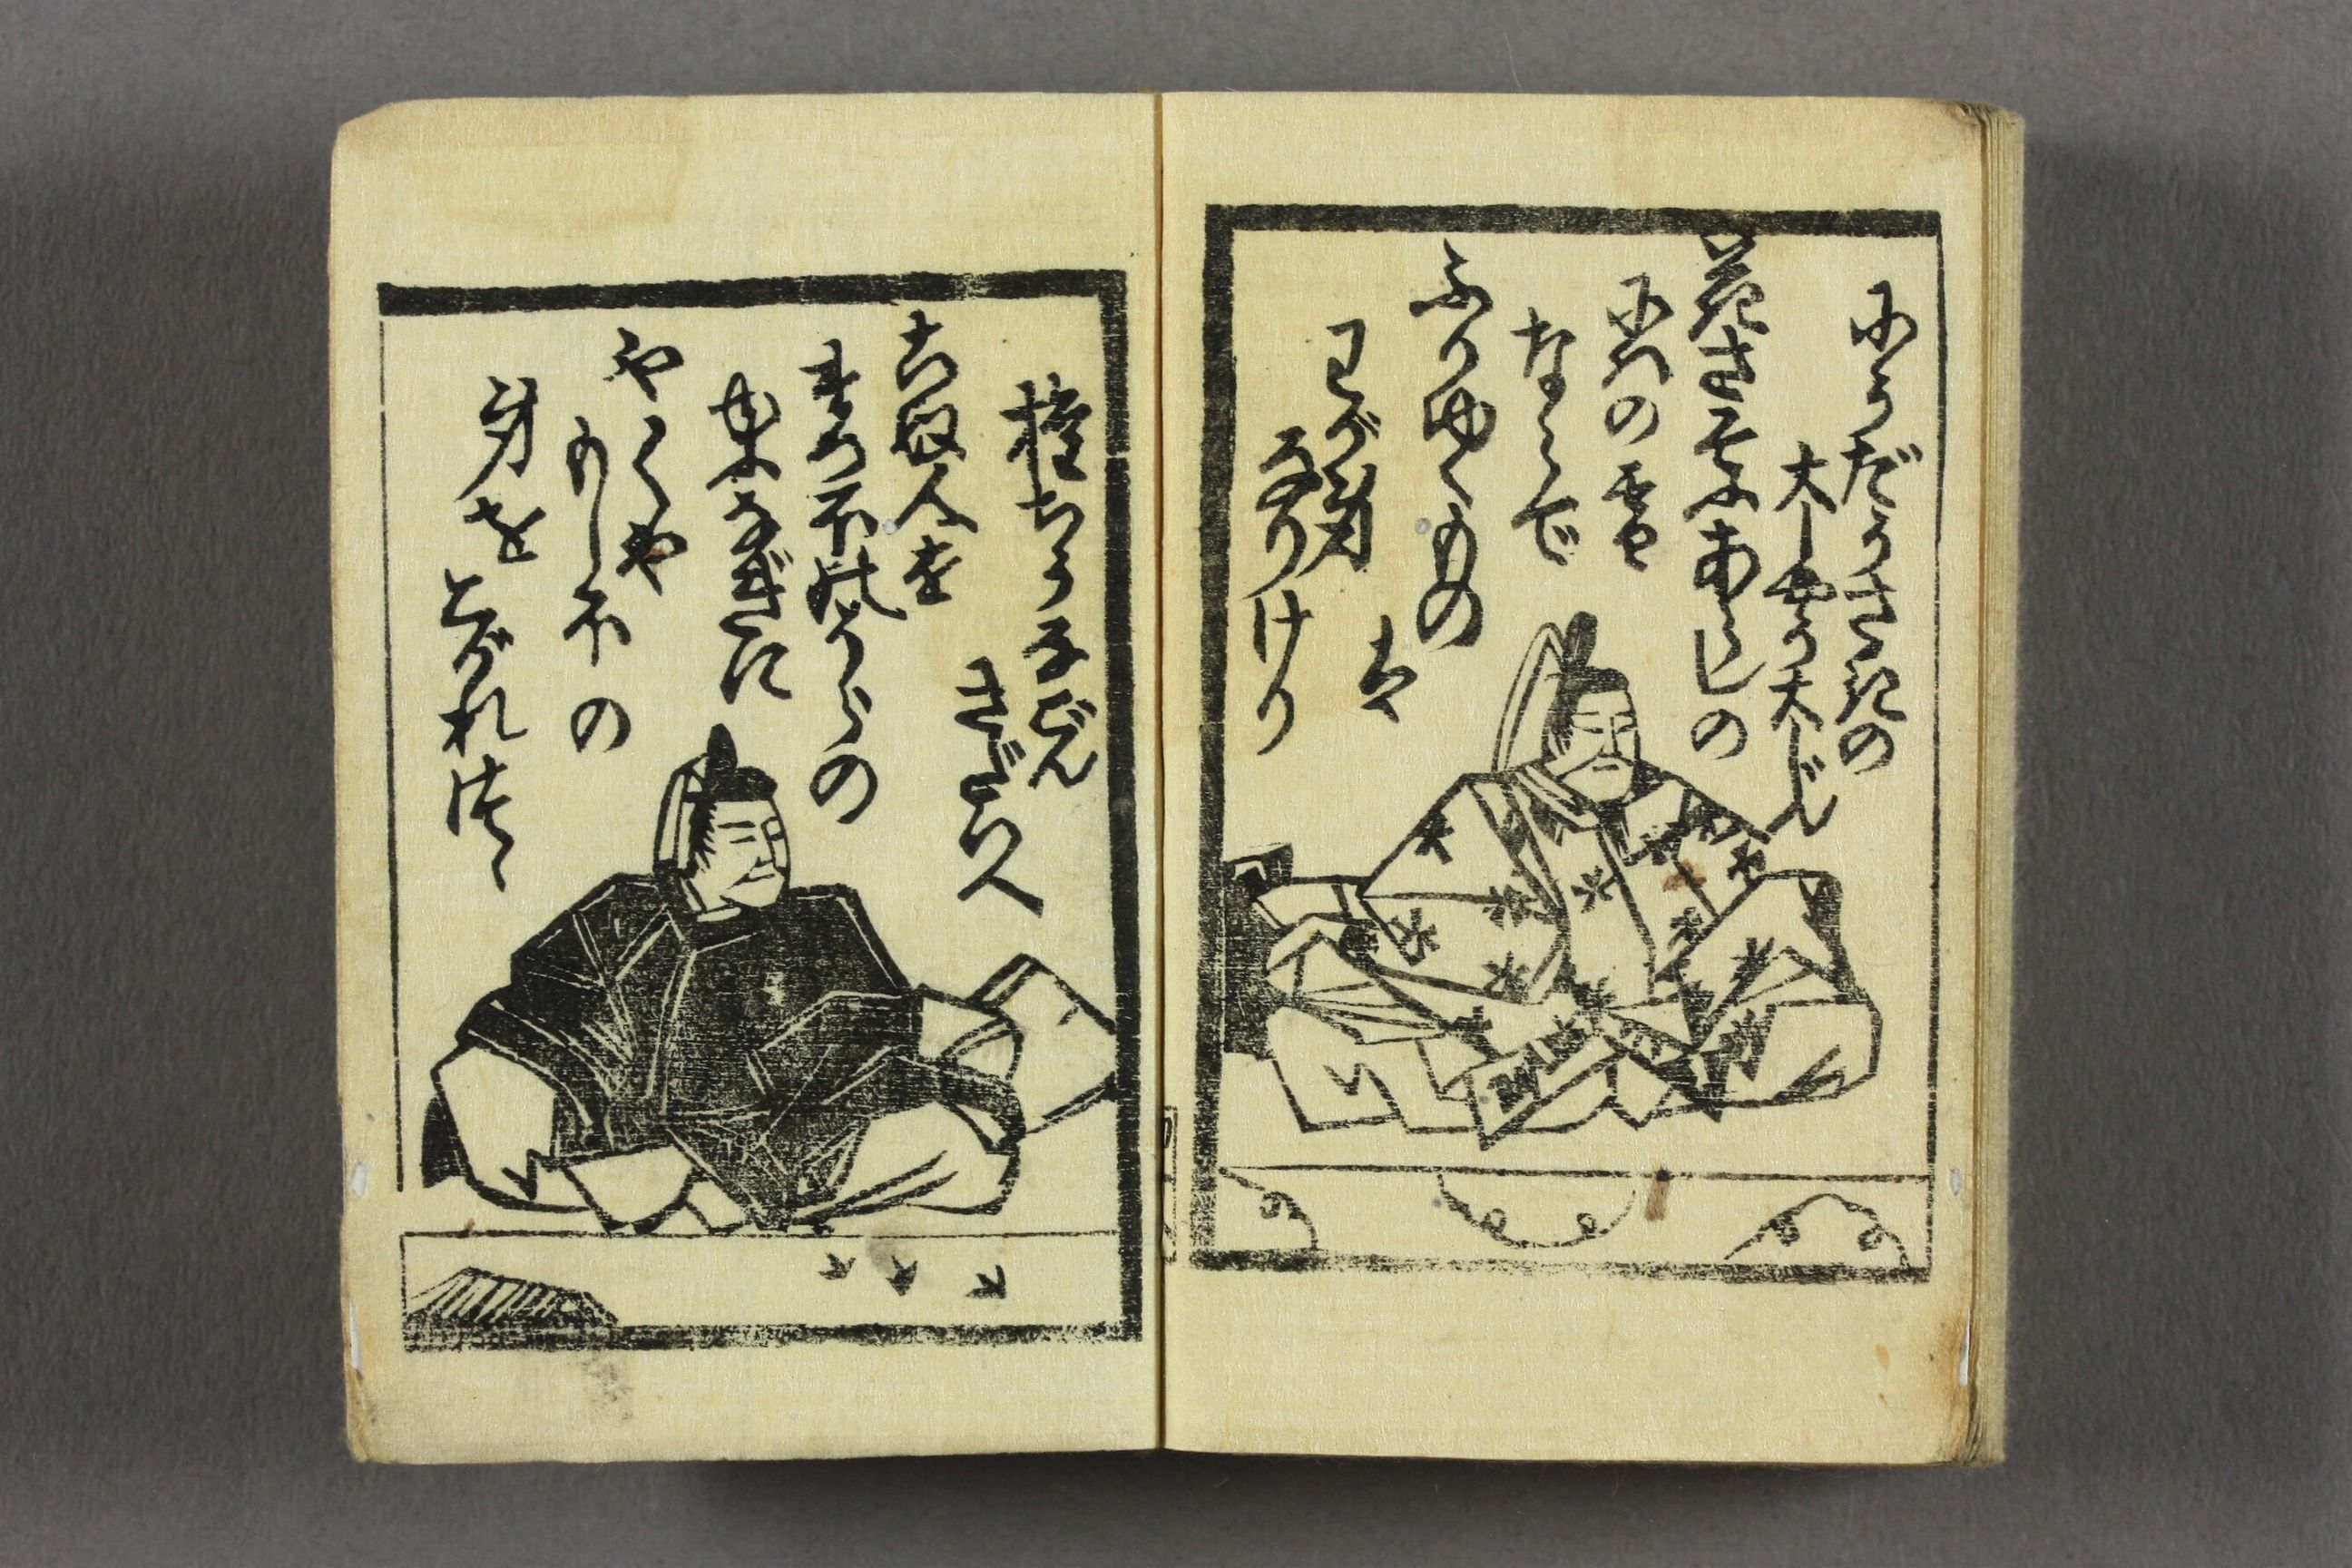 にうだうさきの
大しやう大じん
花さそふあらしの
にはの雪
ならで
ふりゆくもの
は
わが身
なりけり
権ちうなごん
さだいへ
こぬ人を
まつほのうらの
夕なぎに
やくや
もしほの
身もこがれつゝ